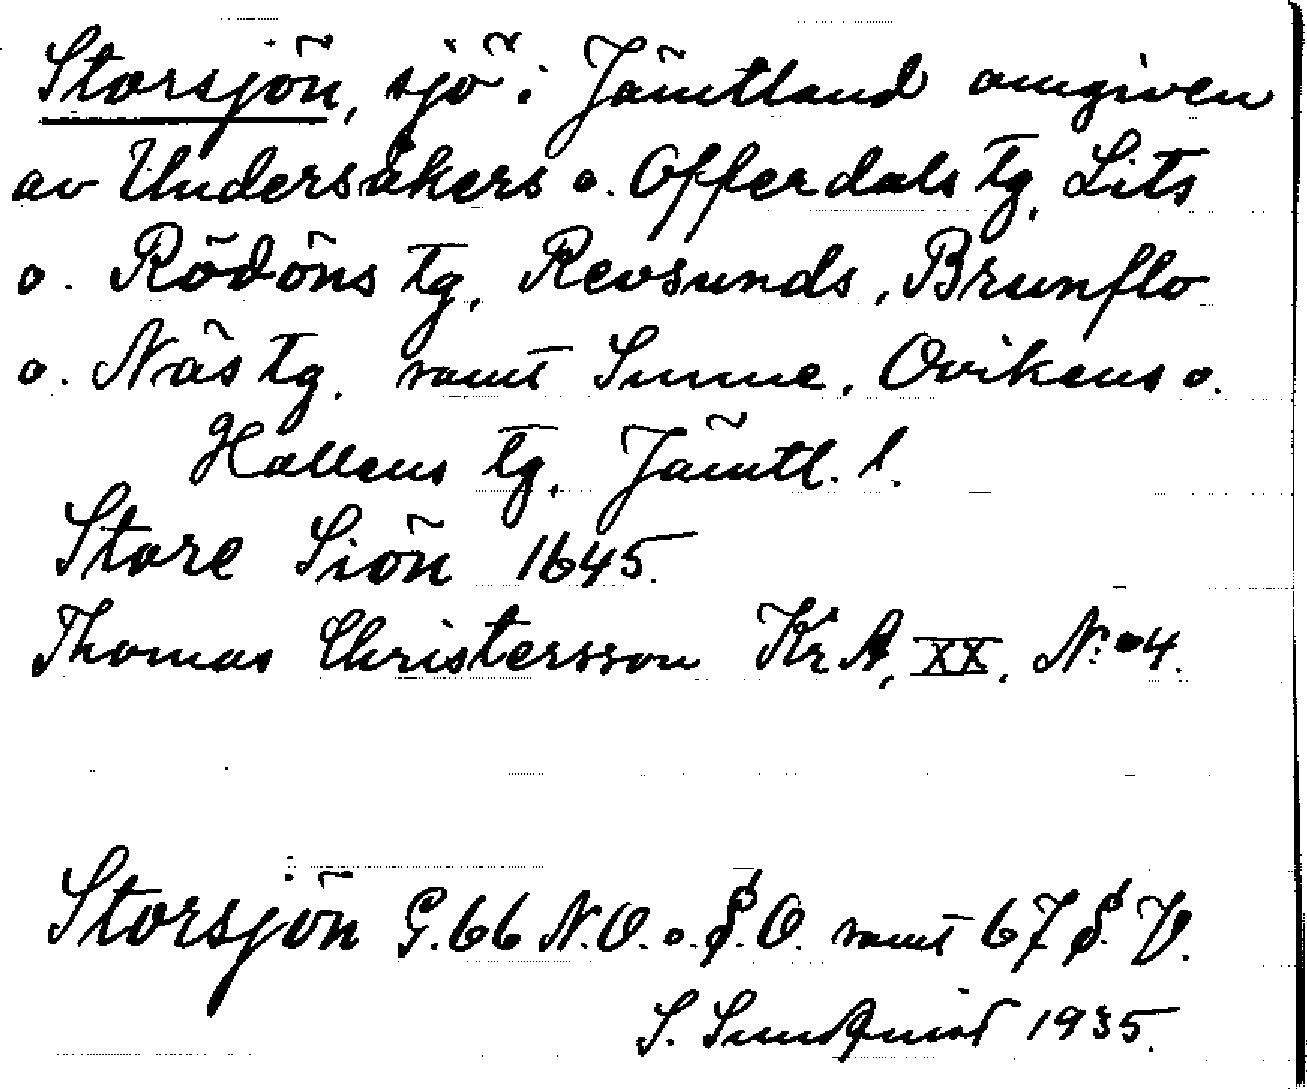 Storsjön, sjö i Jämtland omgiven
av Undersåkers o. Offerdals tg, Lits
o. Rödöns tg, Revsunds, Brunflo
o. Näs tg. samt Sunne, Ovikens o.
Hallens tg, Jämtl. l.
Store Siön 1645.
Thomas Christersson Kr A, XX, N:o 4.
Storsjön G.66 N.O. o. S.O. samt 67 S.V.
S. Sundquist 1935.